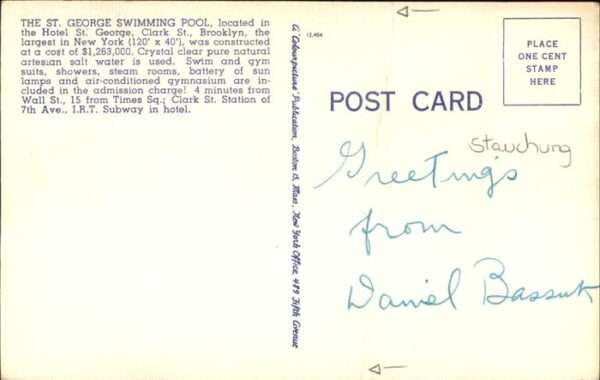 THE ST. GEORGE SWIMMING POOL, located in
the Hotel St. George, Clark St., Brooklyn, the
largest in New York (120' x 40'), was constructed
at a cost of $1,263,000. Crystal clear pure natural
artesian salt water is used. Swim and gym
suits, showers, steam rooms, battery of sun
lamps and air-conditioned gymnasium are in-
cluded in the admission charge! 4 minutes from
Wall St., 15 from Times Sq.; Clark St. Station of
7th Ave., I.R.T. Subway in hotel.
A "Colourpicture" Publication, Boston 15, Mass., New York Office, 489 Fifth Avenue
12,454
POST CARD
PLACE
ONE CENT
STAMP
HERE
Stauchung
Greetings
from
Daniel Bassuk